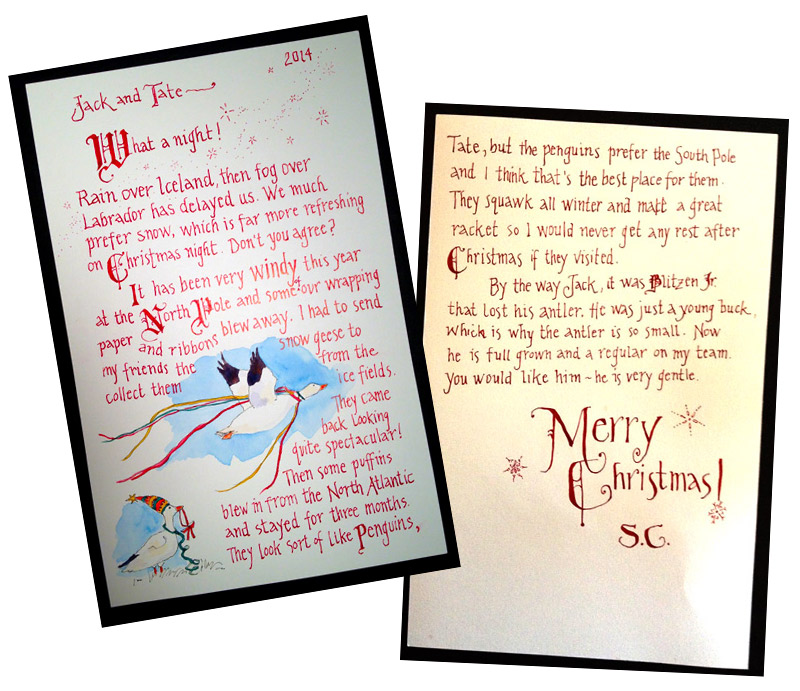 2014
Jack and Tate
What a night!
Rain over Iceland, then fog over
Labrador has delayed us. We much
prefer snow, which is far more refreshing
on Christmas night. Don't you agree?
It has been very windy this year
at the North Pole and some our wrapping
paper and ribbons blew away. I had to send
my friends the snow geese to
collect them from the
ice fields.
They came
back looking
quite spectacular!
Then some puffins
blew in from the North Atlantic
and stayed for three months.
They look sort of like Penguins,
Tate, but the penguins prefer the South Pole
and I think that's the best place for them.
They squawk all winter and matt a great
racket so I would never get any rest after
Christmas if they visited.
By the way Jack, it was Blitzen Jr.
that lost his antler. He was just a young buck,
which is why the antler is so small. Now
he is full grown and a regular on my team.
You would like him~he is very gentle.
Merry
Christmas!
S.C.